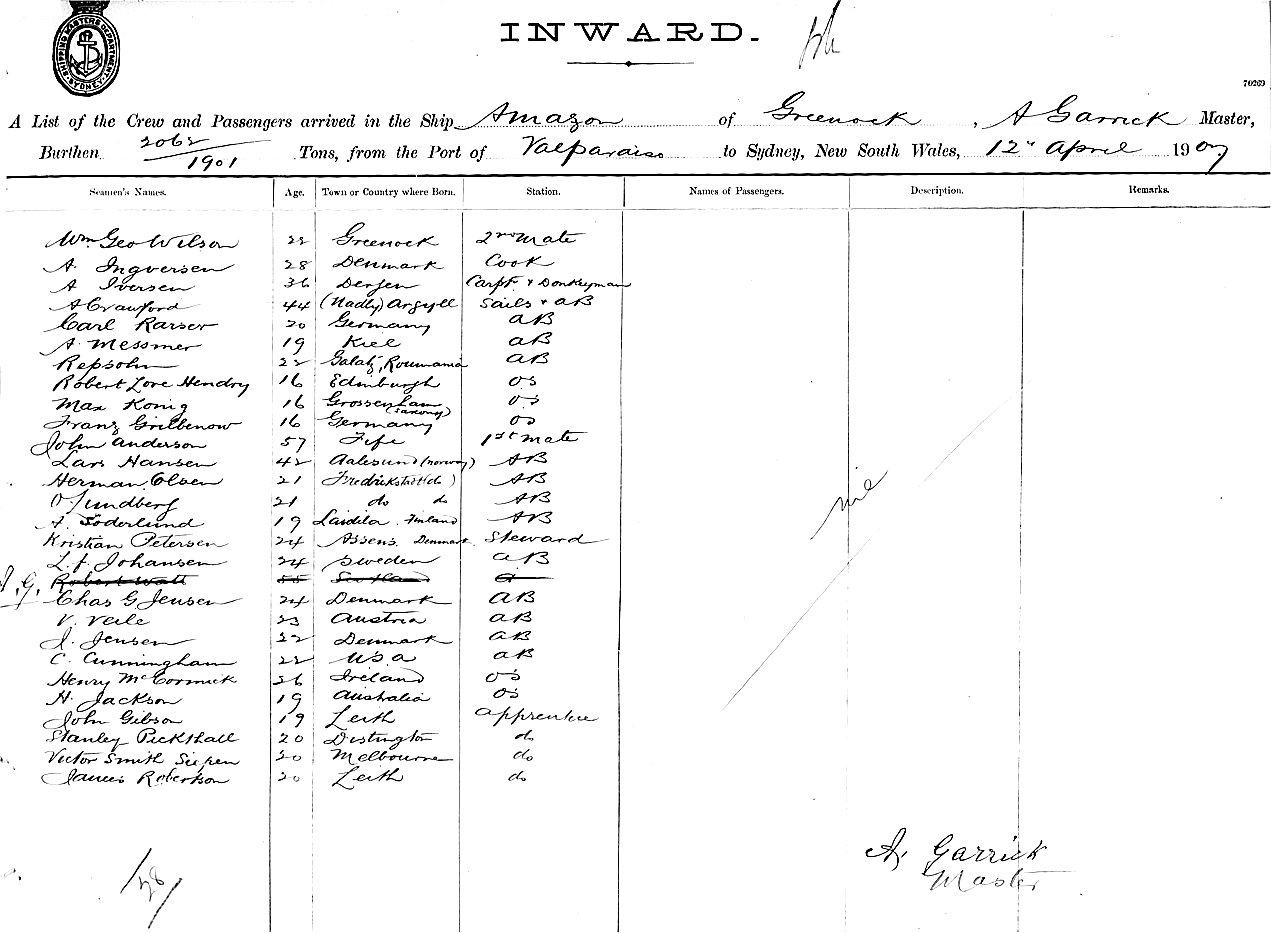 SHIPPING MASTERS DEPARTMENT SYDNEY
INWARD.
70269
A List of the Crew and Passengers arrived in the Ship Amazon of Greenock, A Garrick Master,
Burthen 2062/1901 Tons, from the Port of Valparaiso to Sydney, New South Wales, 12th April 1907
Seamen's Names. Age. Town or Country where Born. Station. Names of Passengers. Description. Remarks.
Wm Geo Wilson 22 Greenock 2nd Mate
A. Ingversen 28 Denmark Cook
A Iversen 36 Bergen Carpt & Donkeyman
A Crawford 44 Argyll Sails & AB
Carl 20 Germany AB
A. Messmer 19 Kiel AB
Repsohn 22 Galatz, Roumania AB
Robert Love Hendry 16 Edinburgh OS
Max Konig 16 Grossenham (Saxony) OS
Franz 16 Germany OS
John Anderson 57 Fife 1st Mate
Lars Hansen 42 Aalesund (Norway) AB
Herman Olsen 21 Fredrickstadt (do) AB
21 do do AB
A. Söderlund 19 Finland AB
Kristian Petersen 24 Assens. Denmark Steward
L. J. Johansen 24 Sweden AB
A.G. Robert Watt 55 Scotland
Chas G Jensen 24 Denmark AB
V. 23 Austria AB
J. Jensen 22 Denmark AB
C. Cunningham 22 USA AB
Henry McCormick 26 Ireland OS
H. Jackson 19 Australia OS
John Gibson 19 Leith Apprentice
Stanley Pickthall 20 Distington do
Victor Smith 20 Melbourne do
James Robertson 20 Leith do
nil
A. Garrick
Master
/28/